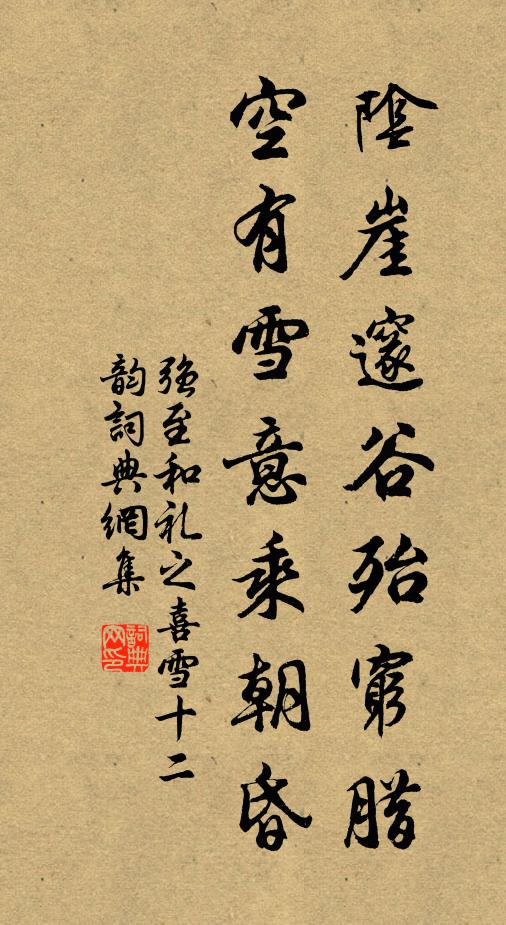 陰崖邃谷殆窮腊
空有雪意乘朝昏
強至和礼之喜雪十二
韵詞典網集
詞典
网印